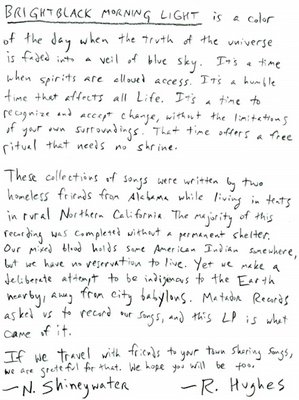 BRIGHTBLACK MORNING LIGHT is a color
of the day when the truth of the universe
is faded into a veil of blue sky. It's a time
when spirits are allowed access. It's a humble
time that affects all Life. It's a time to
recognize and accept change, without the limitations
of your own surroundings. That time offers a free
ritual that needs no shrine.
These collections of songs were written by two
homeless friends from Alabama while living in tents
in rural Northern California The majority of this
recording was completed without a permanent shelter.
Our mixed blood holds some American Indian somewhere,
but we have no reservation to live. Yet we make a
deliberate attempt to be indigenous to the Earth
nearby, away from city babylons. Matador Records
asked us to record our songs, and this LP is what
came of it.
If we travel with friends to your town sharing songs,
we are grateful for that. We hope you will be too.
—N. Shineywater —R. Hughes